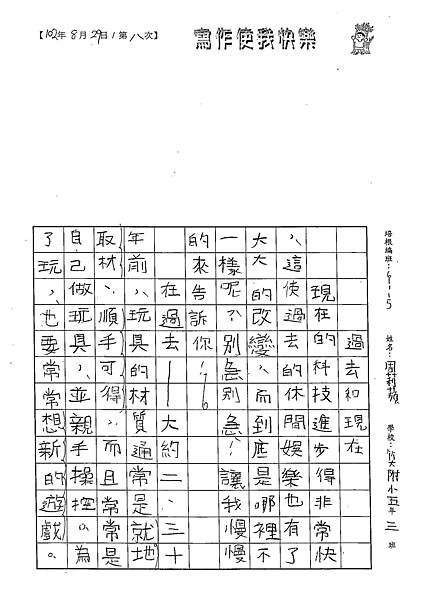 【102年8月29日/第八次】
寫作使我快樂
培根編班:
姓名:
學校: 附小五年三班
過去和現在
現在的科技進步得非常快
，這使過去的休閒娛樂也有了
大大的改變，而到底是哪裡不
一樣呢？別急別急！讓我慢慢
的來告訴你！
在過去──大約二、三十
年前，玩具的材質通常是就地
取材、順手可得，而且常常是
自己做玩具，並親手操控。為
了玩，也要常常想新的遊戲。